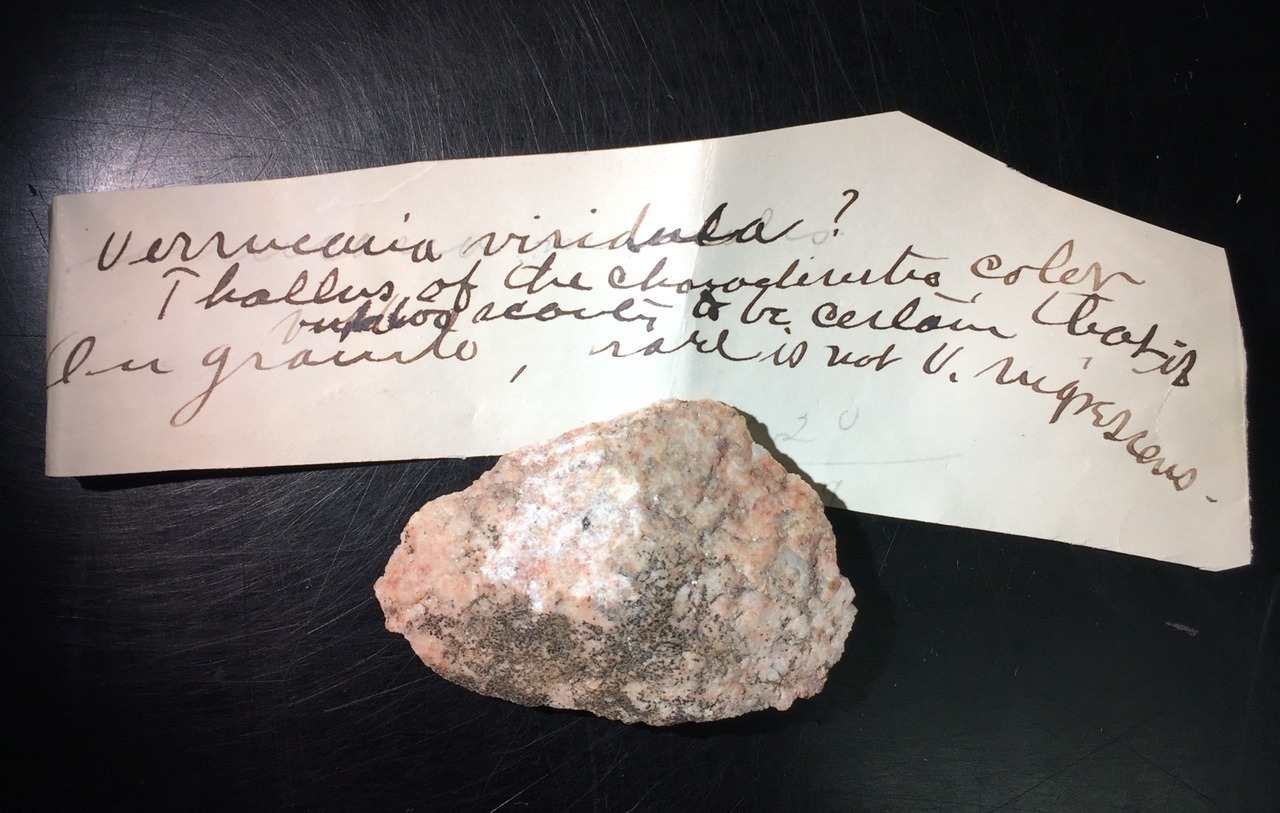 Verrucaria viridula?
Thallus of the characteristic color
but too scanty to be certain that it
On granite, rare is not V. nigrescens.
20